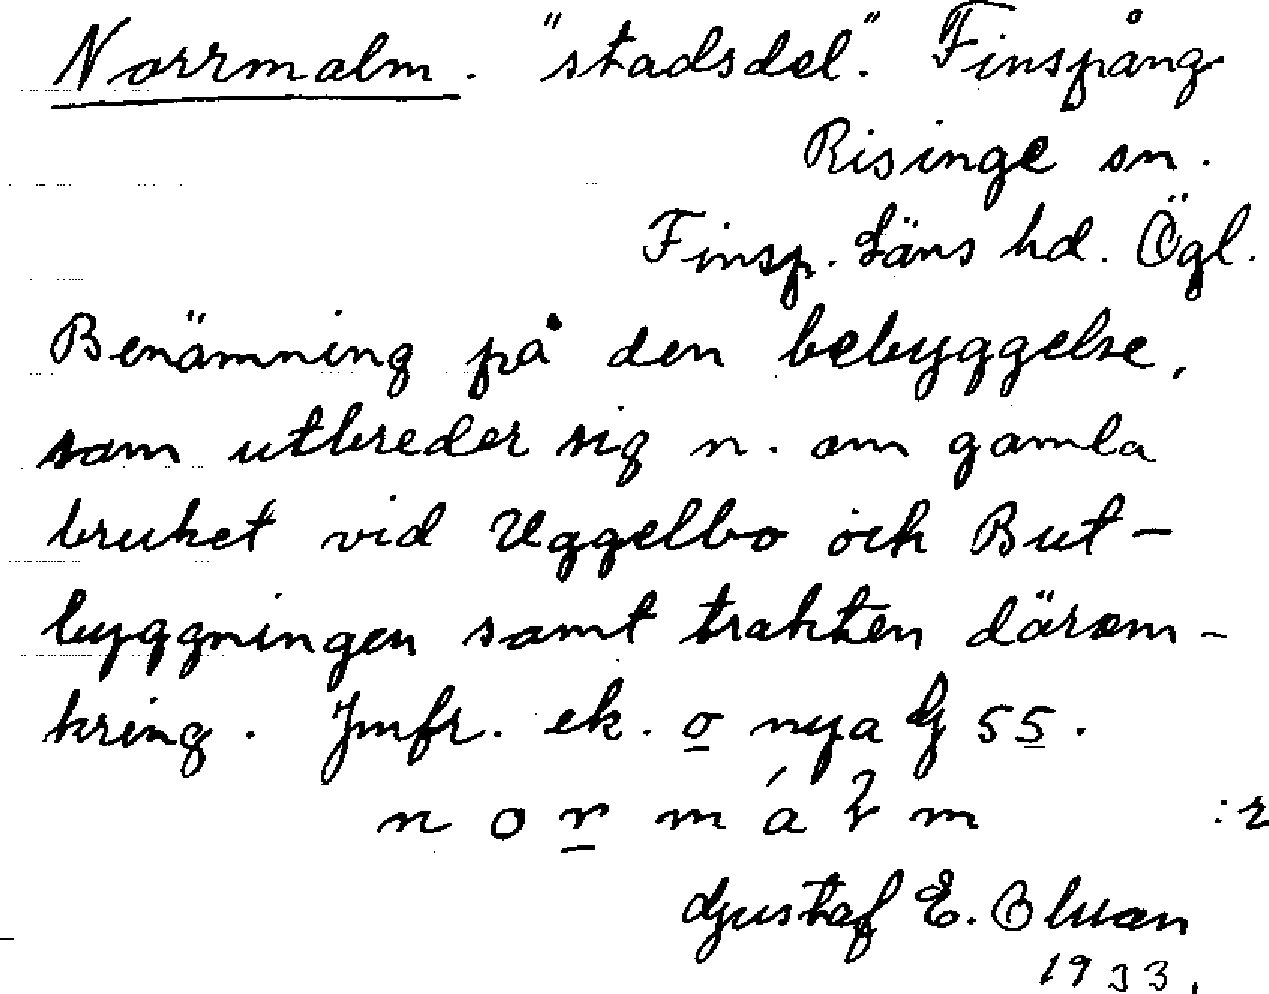 Norrmalm. "stadsdel". Finspång
Risinge sn.
Finsp. Läns hd. Ögl.
Benämning på den bebyggelse,
som utbreder sig n. om gamla
bruket vid Uggelbo och But-
byggningen samt trakten därom-
kring. Jmfr. ek. o nya G 55.
n o r m á l m :r
Gustaf E.
1933.